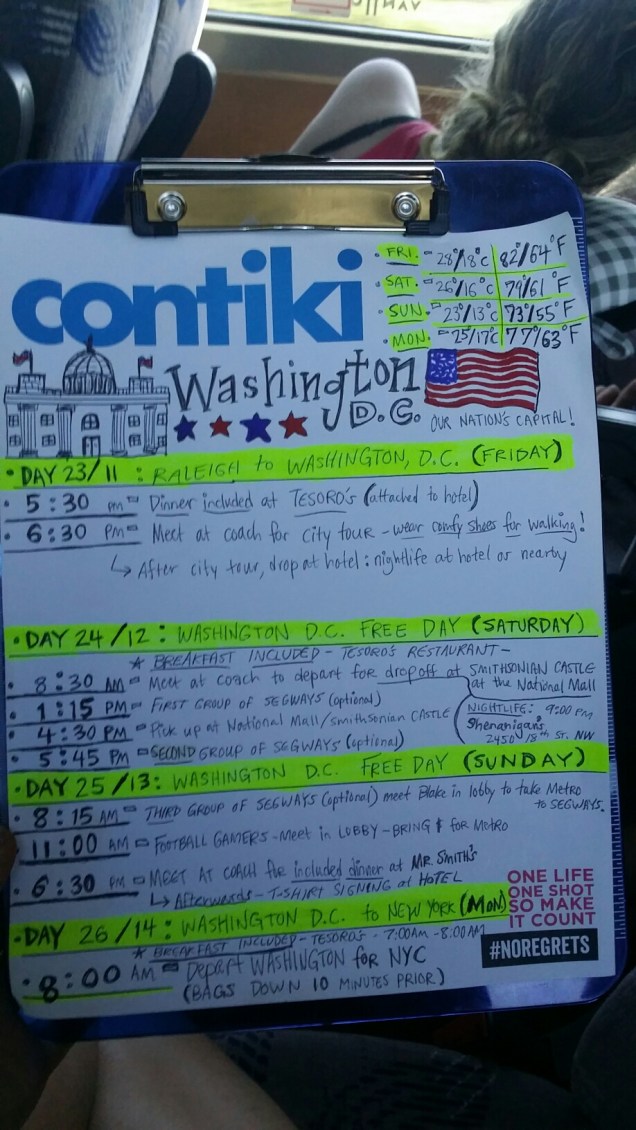 contiki
FRI. - 28°/18°C 82°/64°F
SAT. - 26°/16°C 79°/61°F
SUN. - 23°/13°C 73°/55°F
MON. - 25/17°C 77°/63°F
Washington
D.C. OUR NATION'S CAPITAL!
• DAY 23/11 : RALEIGH to WASHINGTON, D.C. (FRIDAY)
• 5:30 PM - Dinner included at TESORO'S (attached to hotel)
• 6:30 PM - Meet at coach for city tour - wear comfy shoes for walking!
↳ After city tour, drop at hotel : nightlife at hotel or nearby
• DAY 24/12 : WASHINGTON D.C. FREE DAY (SATURDAY)
★ BREAKFAST INCLUDED - TESORO'S RESTAURANT -
• 8:30 AM - Meet at coach to depart for dropoff at SMITHSONIAN CASTLE
at the National Mall
• 1:15 PM - FIRST GROUP OF SEGWAYS (optional)
• 4:30 PM - Pick up at National Mall/Smithsonian CASTLE
• 5:45 PM - SECOND GROUP OF SEGWAYS (optional)
NIGHTLIFE: 9:00 PM
Shenanigan's
2450 18th St. NW
• DAY 25/13: WASHINGTON D.C. FREE DAY (SUNDAY)
• 8:15 AM - THIRD GROUP OF SEGWAYS (optional) meet Blake in lobby to take Metro
to SEGWAYS.
11:00 AM - FOOTBALL GAMERS - Meet in LOBBY - BRING $ for Metro
• 6:30 PM - MEET AT COACH for included dinner at MR. SMITH'S
↳ Afterwards - T-SHIRT SIGNING at HOTEL
• DAY 26/14: WASHINGTON D.C. to NEW YORK (MON)
★ BREAKFAST INCLUDED - TESORO'S - 7:00AM - 8:00AM
• 8:00 AM - Depart WASHINGTON for NYC
(BAGS DOWN 10 MINUTES PRIOR)
ONE LIFE
ONE SHOT
SO MAKE
IT COUNT
#NOREGRETS